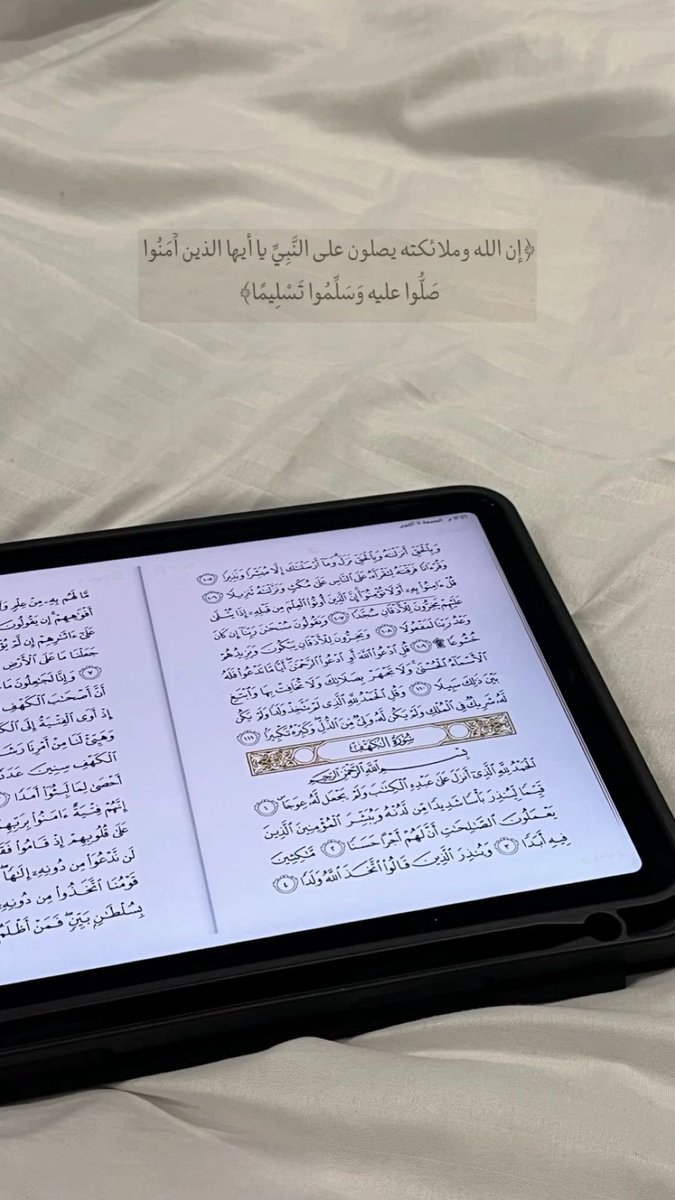 ﴿إن الله وملائكته يصلون على النَّبِيِّ يا أيها الذين آمَنُوا
صَلُّوا عليه وَسَلِّمُوا تَسْلِيمًا﴾
الجمعة ١١ أكتوبر
وَبِٱلْحَقِّ أَنزَلْنَٰهُ وَبِٱلْحَقِّ نَزَلَ وَمَآ أَرْسَلْنَٰكَ إِلَّا مُبَشِّرًا وَنَذِيرًا ١٠٥
وَقُرْءَانًا فَرَقْنَٰهُ لِتَقْرَأَهُۥ عَلَى ٱلنَّاسِ عَلَىٰ مُكْثٍ وَنَزَّلْنَٰهُ تَنزِيلًا ١٠٦
قُلْ ءَامِنُوا۟ بِهِۦٓ أَوْ لَا تُؤْمِنُوٓا۟ إِنَّ ٱلَّذِينَ أُوتُوا۟ ٱلْعِلْمَ مِن قَبْلِهِۦٓ إِذَا يُتْلَىٰ
عَلَيْهِمْ يَخِرُّونَ لِلْأَذْقَانِ سُجَّدًا ١٠٧ وَيَقُولُونَ سُبْحَٰنَ رَبِّنَآ إِن كَانَ
وَعْدُ رَبِّنَا لَمَفْعُولًا ١٠٨ وَيَخِرُّونَ لِلْأَذْقَانِ يَبْكُونَ وَيَزِيدُهُمْ
خُشُوعًا ۩ ١٠٩ قُلِ ٱدْعُوا۟ ٱللَّهَ أَوِ ٱدْعُوا۟ ٱلرَّحْمَٰنَ أَيًّا مَّا تَدْعُوا۟ فَلَهُ
ٱلْأَسْمَآءُ ٱلْحُسْنَىٰ وَلَا تَجْهَرْ بِصَلَاتِكَ وَلَا تُخَافِتْ بِهَا وَٱبْتَغِ
بَيْنَ ذَٰلِكَ سَبِيلًا ١١٠ وَقُلِ ٱلْحَمْدُ لِلَّهِ ٱلَّذِى لَمْ يَتَّخِذْ وَلَدًا وَلَمْ يَكُن
لَّهُۥ شَرِيكٌ فِى ٱلْمُلْكِ وَلَمْ يَكُن لَّهُۥ وَلِىٌّ مِّنَ ٱلذُّلِّ وَكَبِّرْهُ تَكْبِيرًا ١١١
سُورَةُ الكَهْفِ
بِسْمِ ٱللَّهِ ٱلرَّحْمَٰنِ ٱلرَّحِيمِ
ٱلْحَمْدُ لِلَّهِ ٱلَّذِىٓ أَنزَلَ عَلَىٰ عَبْدِهِ ٱلْكِتَٰبَ وَلَمْ يَجْعَل لَّهُۥ عِوَجَا ١
قَيِّمًا لِّيُنذِرَ بَأْسًا شَدِيدًا مِّن لَّدُنْهُ وَيُبَشِّرَ ٱلْمُؤْمِنِينَ ٱلَّذِينَ
يَعْمَلُونَ ٱلصَّٰلِحَٰتِ أَنَّ لَهُمْ أَجْرًا حَسَنًا ٢ مَّٰكِثِينَ
فِيهِ أَبَدًا ٣ وَيُنذِرَ ٱلَّذِينَ قَالُوا۟ ٱتَّخَذَ ٱللَّهُ وَلَدًا ٤
مَّا لَهُم بِهِۦ مِنْ عِلْمٍ
أَفْوَٰهِهِمْ إِن يَقُولُونَ
عَلَىٰٓ ءَاثَٰرِهِمْ إِن لَّمْ
جَعَلْنَا مَا عَلَى ٱلْأَرْضِ
٧ وَإِنَّا لَجَٰعِلُونَ مَا
أَنَّ أَصْحَٰبَ ٱلْكَهْفِ
إِذْ أَوَى ٱلْفِتْيَةُ إِلَى
وَهَيِّئْ لَنَا مِنْ أَمْرِنَا
ٱلْكَهْفِ سِنِينَ عَدَدًا
أَحْصَىٰ لِمَا لَبِثُوٓا۟ أَمَدًا
إِنَّهُمْ فِتْيَةٌ ءَامَنُوا۟
عَلَىٰ قُلُوبِهِمْ إِذْ قَامُوا۟
لَن نَّدْعُوَا۟ مِن دُونِهِۦٓ إِلَٰهًا
قَوْمُنَا ٱتَّخَذُوا۟ مِن دُونِهِۦٓ
بِسُلْطَٰنٍۭ بَيِّنٍ فَمَنْ أَظْلَمُ